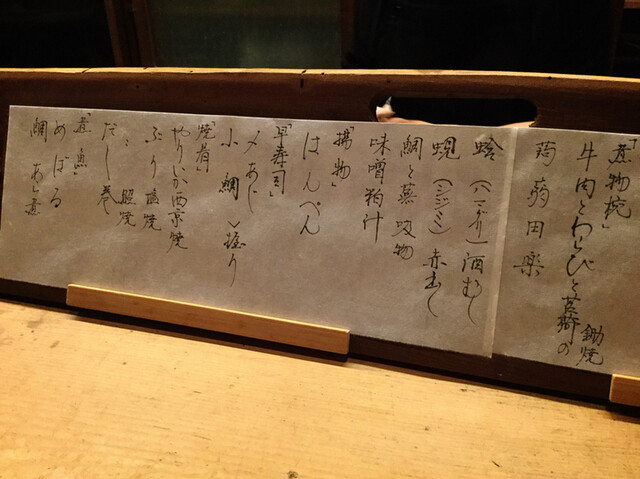 「煮物椀」
牛肉とわらびと蕗の
鋤焼
蒟蒻田楽
蛤(ハマグリ)酒むし
蜆(シジミ)赤出し
鯛と蕪吸物
味噌粕汁
「揚物」
はんぺん
「早寿司」
〆あじ
小鯛
握り
「焼肴」
やりいか西京焼
ぶり塩焼
〃照焼
だし巻
「煮魚」
めばる
鯛あら煮